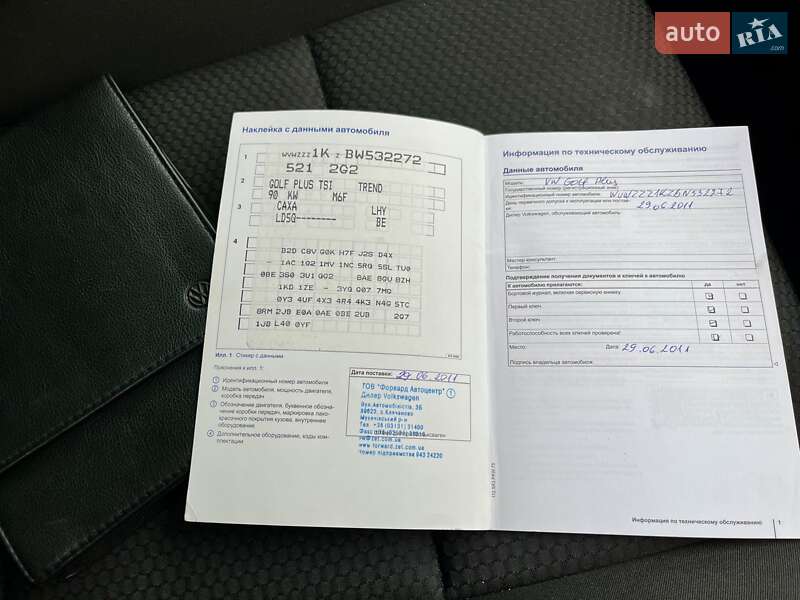 auto RIA.com
Наклейка с данными автомобиля
1
WVWZZZ 1K Z BW532272
521 2G2
2
GOLF PLUS TSI TREND
90 KW M6F
3
CAXA LHY
LD5Q-------- BE
4
B2D C8V G0K H7F J2S D4X
- 1AC 1G2 1MV 1NC 5RQ 5SL TV0
0BE 3S0 3U1 QG2 BAE 8GV 8ZH
1KD 1ZE - 3YQ Q07 7MG
0Y3 4UF 4X3 4R4 4K3 N4Q 5TC
8RM 2JB E0A 0AE 0SE 2UB 2G7
1JB L40 0YF
Илл. 1 Стикер с данными
Пояснения к илл. 1:
1 Идентификационный номер автомобиля
2 Модель автомобиля, мощность двигателя, коробка передач
3 Обозначение двигателя, буквенное обозначение коробки передач, маркировка лакокрасочного покрытия кузова, внутреннее оборудование
4 Дополнительное оборудование, коды комплектации
Дата поставки: 29.06.2011
ТОВ "Форвард Автоцентр" 1
Дилер Volkswagen
Мукачівський р-н
www.forward.zet.com.ua
Информация по техническому обслуживанию
Данные автомобиля
Модель: VW Golf Plus
Государственный номер (регистрационный знак):
Идентификационный номер автомобиля: WVWZZZ1KZBW532272
День первичного допуска к эксплуатации или поставки: 29.06.2011
Дилер Volkswagen, обслуживающий автомобиль:
Мастер-консультант:
Телефон:
Подтверждение получения документов и ключей к автомобилю
К автомобилю прилагаются: да нет
Бортовой журнал, включая сервисную книжку
Первый ключ
Второй ключ
Работоспособность всех ключей проверена!
Место: Дата: 29.06.2011
Подпись владельца автомобиля:
Информация по техническому обслуживанию 1